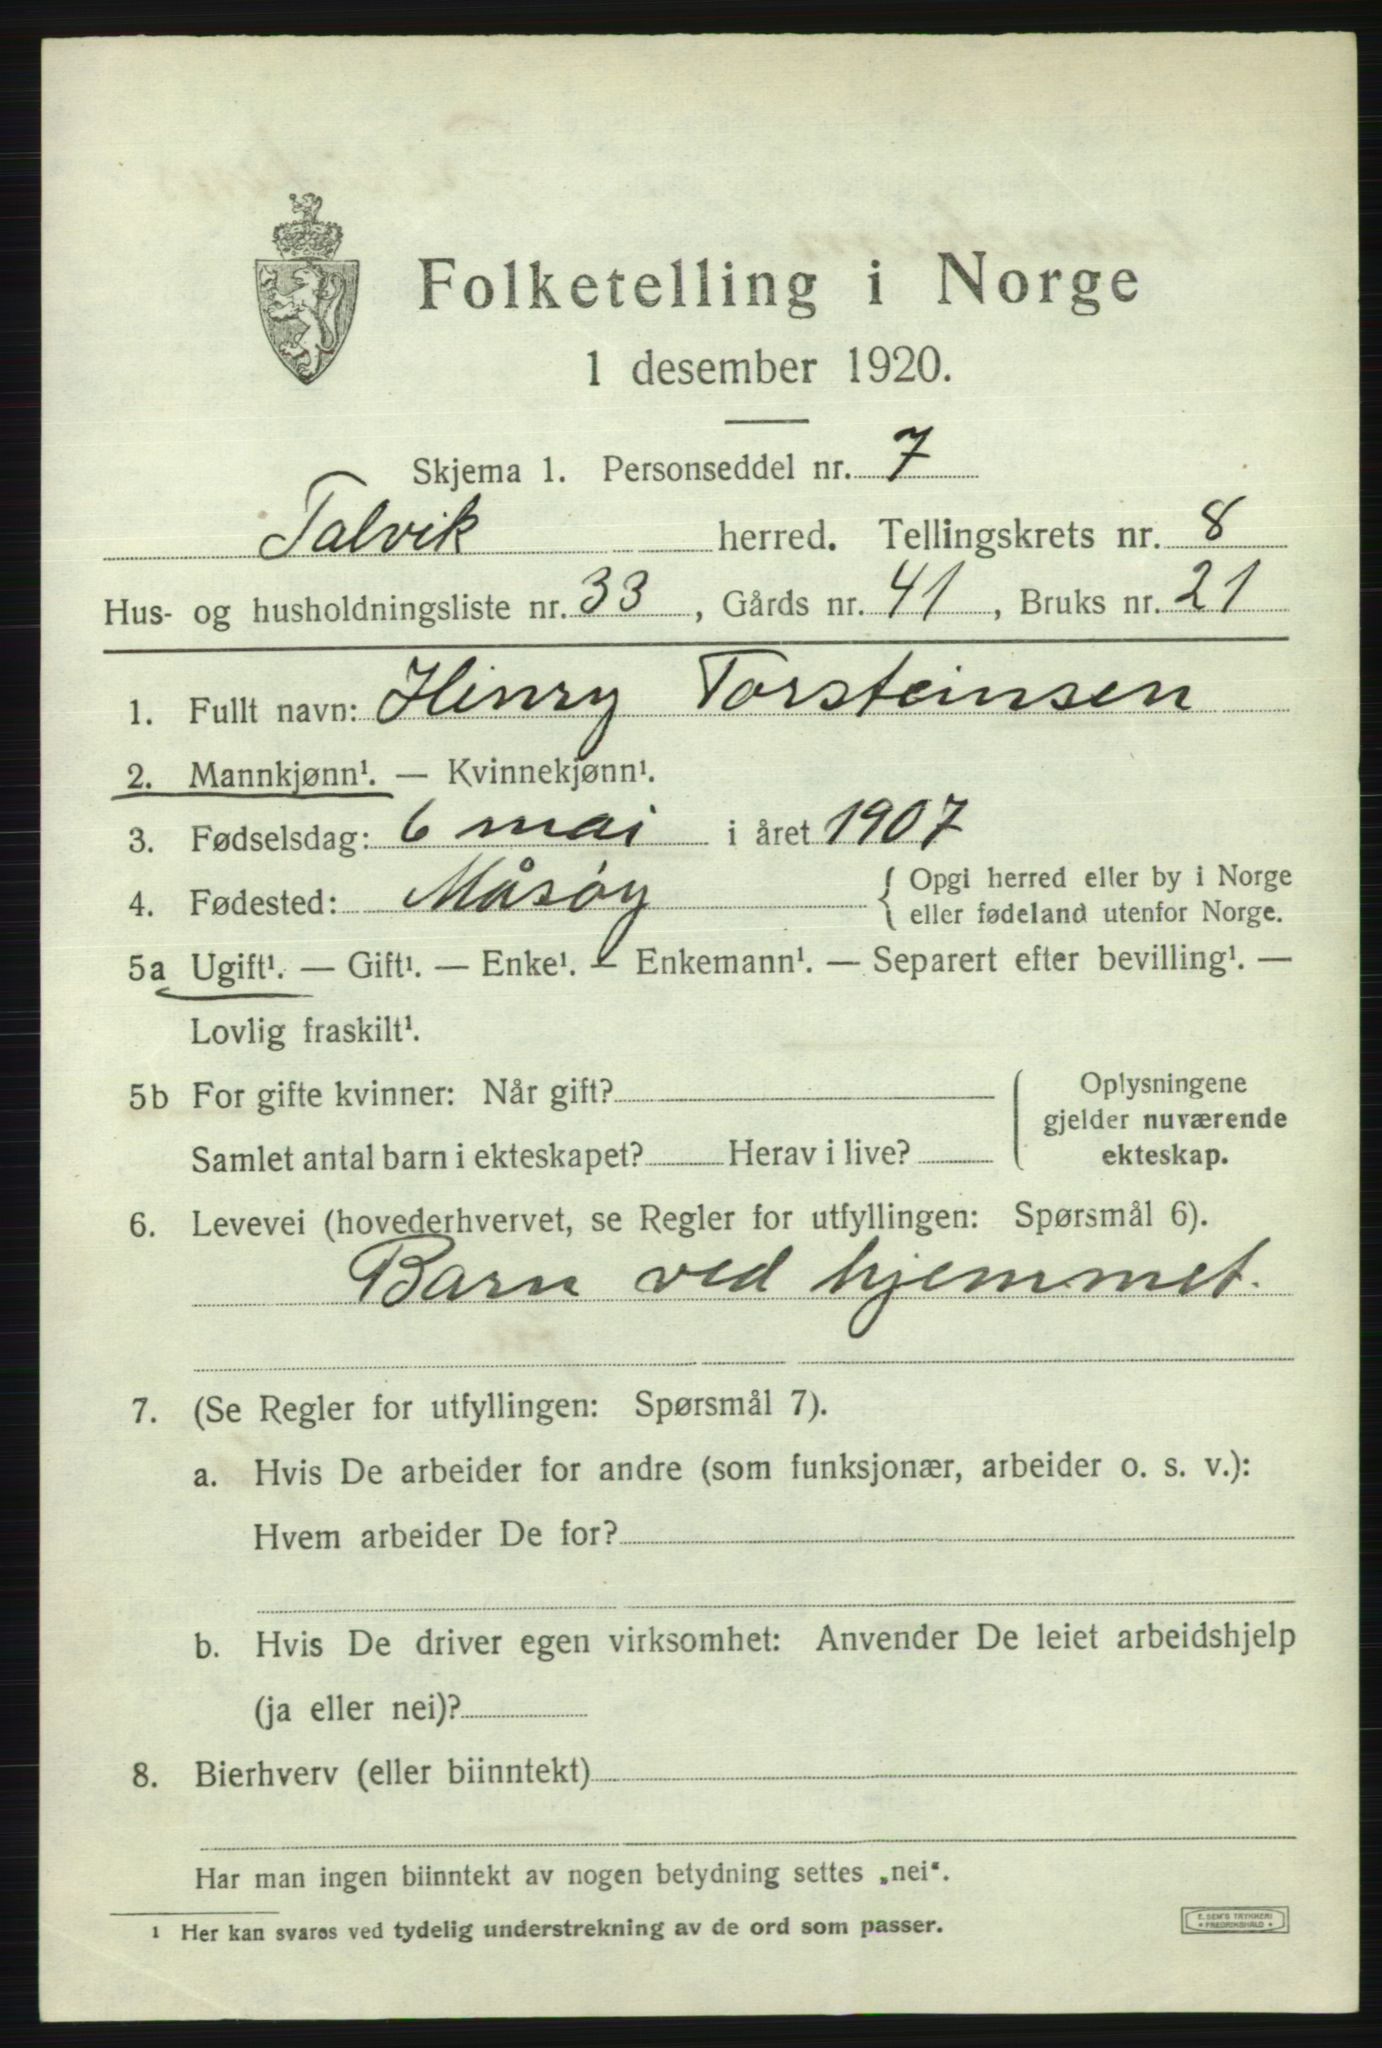 Folketelling i Norge
1 desember 1920.
Skjema 1. Personseddel nr. 7
Talvik herred. Tellingskrets nr. 8
Hus- og husholdningsliste nr. 33, Gårds nr. 41, Bruks nr. 21
1. Fullt navn: Hinry Torsteinsen
2. Mannkjønn¹. — Kvinnekjønn¹.
3. Fødselsdag: 6 mai i året 1907
4. Fødested: Måsøy { Opgi herred eller by i Norge
eller fødeland utenfor Norge.
5a Ugift¹. — Gift¹. — Enke¹. — Enkemann¹. — Separert efter bevilling¹. —
Lovlig fraskilt¹.
5b For gifte kvinner: Når gift?
Samlet antal barn i ekteskapet? Herav i live?
Oplysningene
gjelder nuværende
ekteskap.
6. Levevei (hovederhvervet, se Regler for utfyllingen: Spørsmål 6).
Barn ved hjemmet.
7. (Se Regler for utfyllingen: Spørsmål 7).
a. Hvis De arbeider for andre (som funksjonær, arbeider o. s. v.):
Hvem arbeider De for?
b. Hvis De driver egen virksomhet: Anvender De leiet arbeidshjelp
(ja eller nei)?
8. Bierhverv (eller biinntekt)
Har man ingen biinntekt av nogen betydning settes „nei“.
¹ Her kan svares ved tydelig understrekning av de ord som passer.
E. SEM'S TRYKKERI
• FREDRIKSHALD •